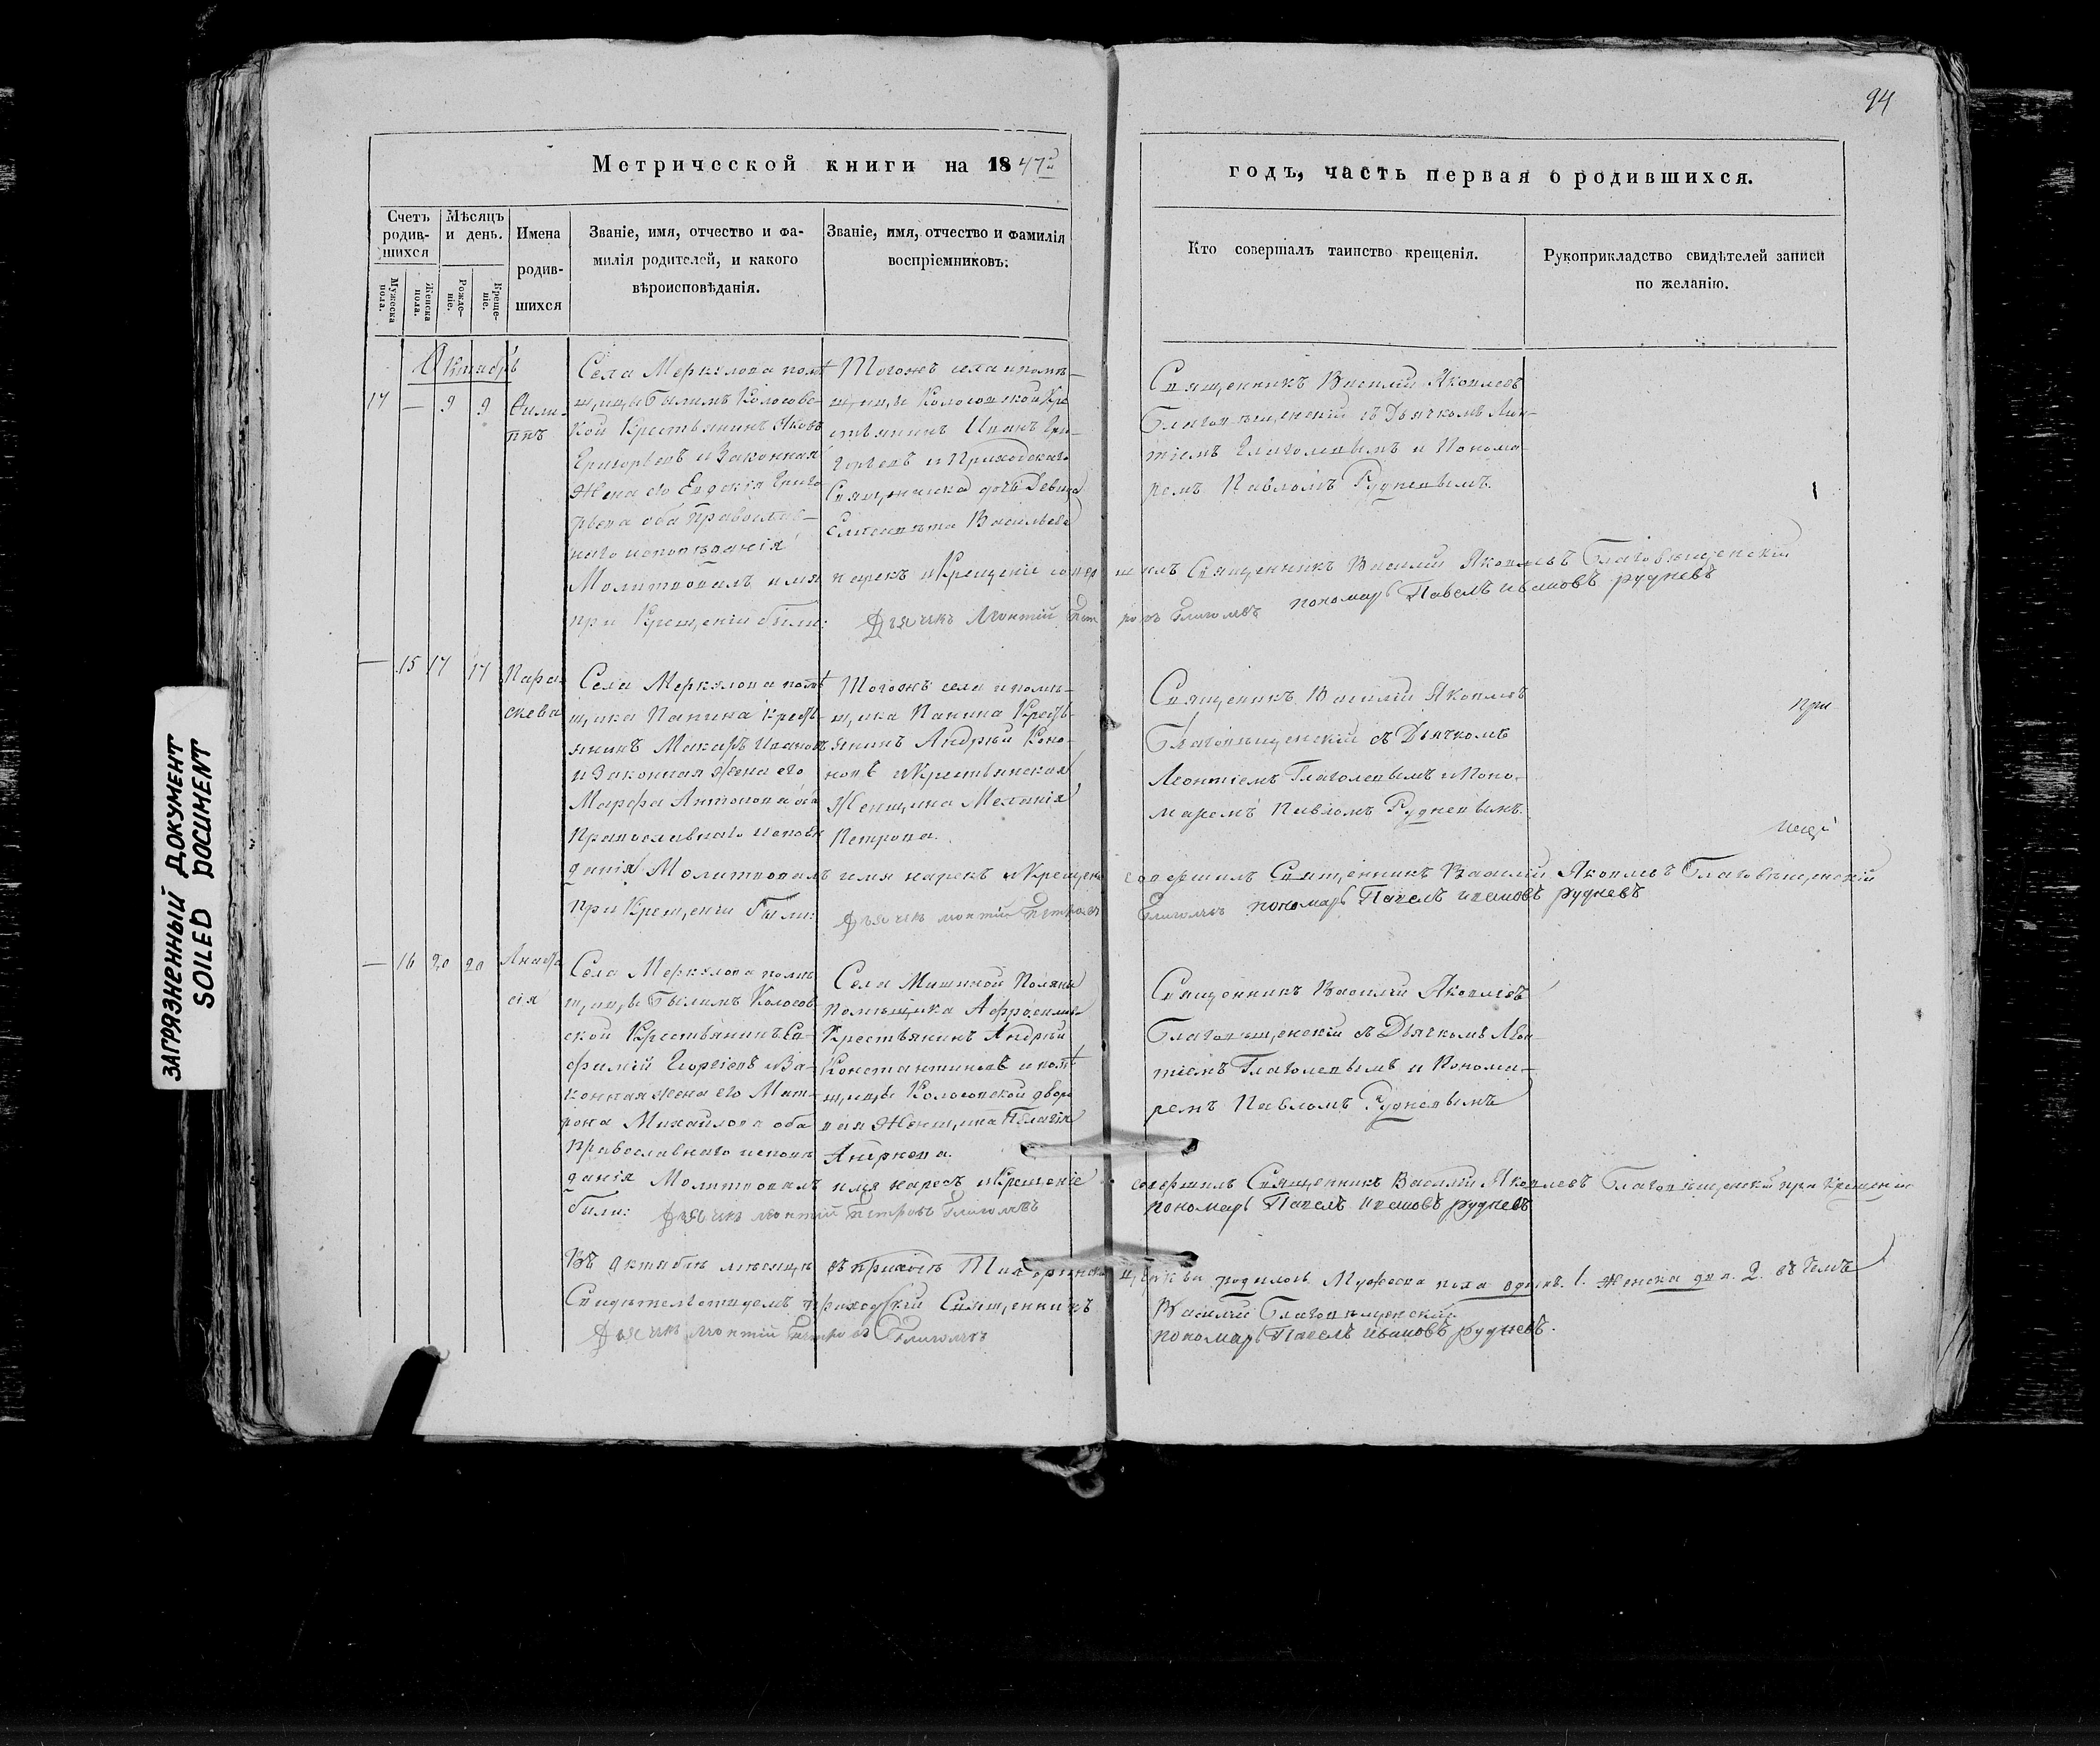 94
Метрической книги на 1847й
годъ, часть первая о родившихся.
Счетъ родив-шихся
Мѣсяцъ и день.
Имена родив-шихся
Званіе, имя, отчество и фа-
милія родителей, и какого
вѣроисповѣданія.
Званіе, имя, отчество и фамилія
воспріемниковъ.
Кто совершалъ таинство крещенія.
Рукоприкладство свидѣтелей записи
по желанію.
Мужеска пола.
Женска пола.
Рожде-ніе.
Креще-ніе.
Октябрь
17 — 9 9
Фили-
ппъ
Села Меркулова помѣ
щицы Былимъ Колосовс-
кой Крестьянинъ Яковъ
Григорьевъ и Законная
Жена его Евдокія Григо
рьева оба Православ-
наго исповѣданія
Тогожъ села и помѣ-
щицы Колосовской Кре
стьянинъ Иванъ Гри-
горьевъ и Приходскаго
Священника дочь Девица
Елисавета Васильева
Священникъ Василій Яковлевъ
Благовѣщенскій съ Дьячкомъ Леон-
тіемъ Глаголевымъ и Понома-
ремъ Павломъ Рудневымъ.
Молитвовалъ имя нарекъ и Крещеніе совершилъ Священникъ Василій Яковлевъ Благовѣщенскій
при Крещеніи были: Дьячекъ Леонтій Петровъ Глаголевъ пономарь Павелъ Ивановъ рудневъ
— 15 17 17
Пара-
скева
Села Меркулова помѣ
щика Панина Кресть-
янинъ Макаръ Ивановъ
и Законная Жена его
Марфа Антонова оба
Православнаго исповѣ
данія
Тогожъ села и помѣ-
щика Панина Кресть-
янинъ Андрей Коно-
новъ и Крестьянская
Женщина Меланія
Петрова.
Священникъ Василій Яковлевъ
Благовѣщенскій съ Дьячкомъ
Леонтіемъ Глаголевымъ и Поно-
маремъ Павломъ Рудневымъ.
при
Молитвовалъ имя нарекъ и Крещеніе совершилъ Священникъ Василій Яковлевъ Благовѣщенскій
При Крещеніи были: Дьячекъ леонтій Петровъ Глаголевъ пономарь Павелъ ивановъ рудневъ
— 16 20 20
Анаста
сія
Села Меркулова помѣ
щицы Былимъ Колосов-
ской Крестьянинъ Ев-
фимій Георгіевъ и За-
конная жена его Мат-
рона Михайлова оба
Православнаго исповѣ
данія
Села Мишиной Поляны
Помѣщика Афросимова
Крестьянинъ Андрей
Константиновъ и помѣ
щицы Колосовской двор
вая Женщина Пелагія
Андреева.
Священникъ Василій Яковлевъ
Благовѣщенскій съ Дьячкомъ Леон-
тіемъ Глаголевымъ и Понома-
ремъ Павломъ Рудневымъ
Молитвовалъ имя нарекъ и Крещеніе совершилъ Священникъ Василій Яковлевъ Благовѣщенскій при Крещеніи
были: Дьячекъ леонтій Петровъ Глаголевъ пономарь Павелъ ивановъ рудневъ
Въ Октябрѣ мѣсяцѣ въ приходѣ церкви родилось Мужеска пола одинъ. 1. Женска два. 2. въ чемъ
Свидѣтельствуемъ приходскій Священникъ Василій Благовѣщенскій
Дьячекъ леонтій Петровъ Глаголевъ пономарь Павелъ ивановъ рудневъ.
ЗАГРЯЗНЕННЫЙ ДОКУМЕНТ
SOILED DOCUMENT